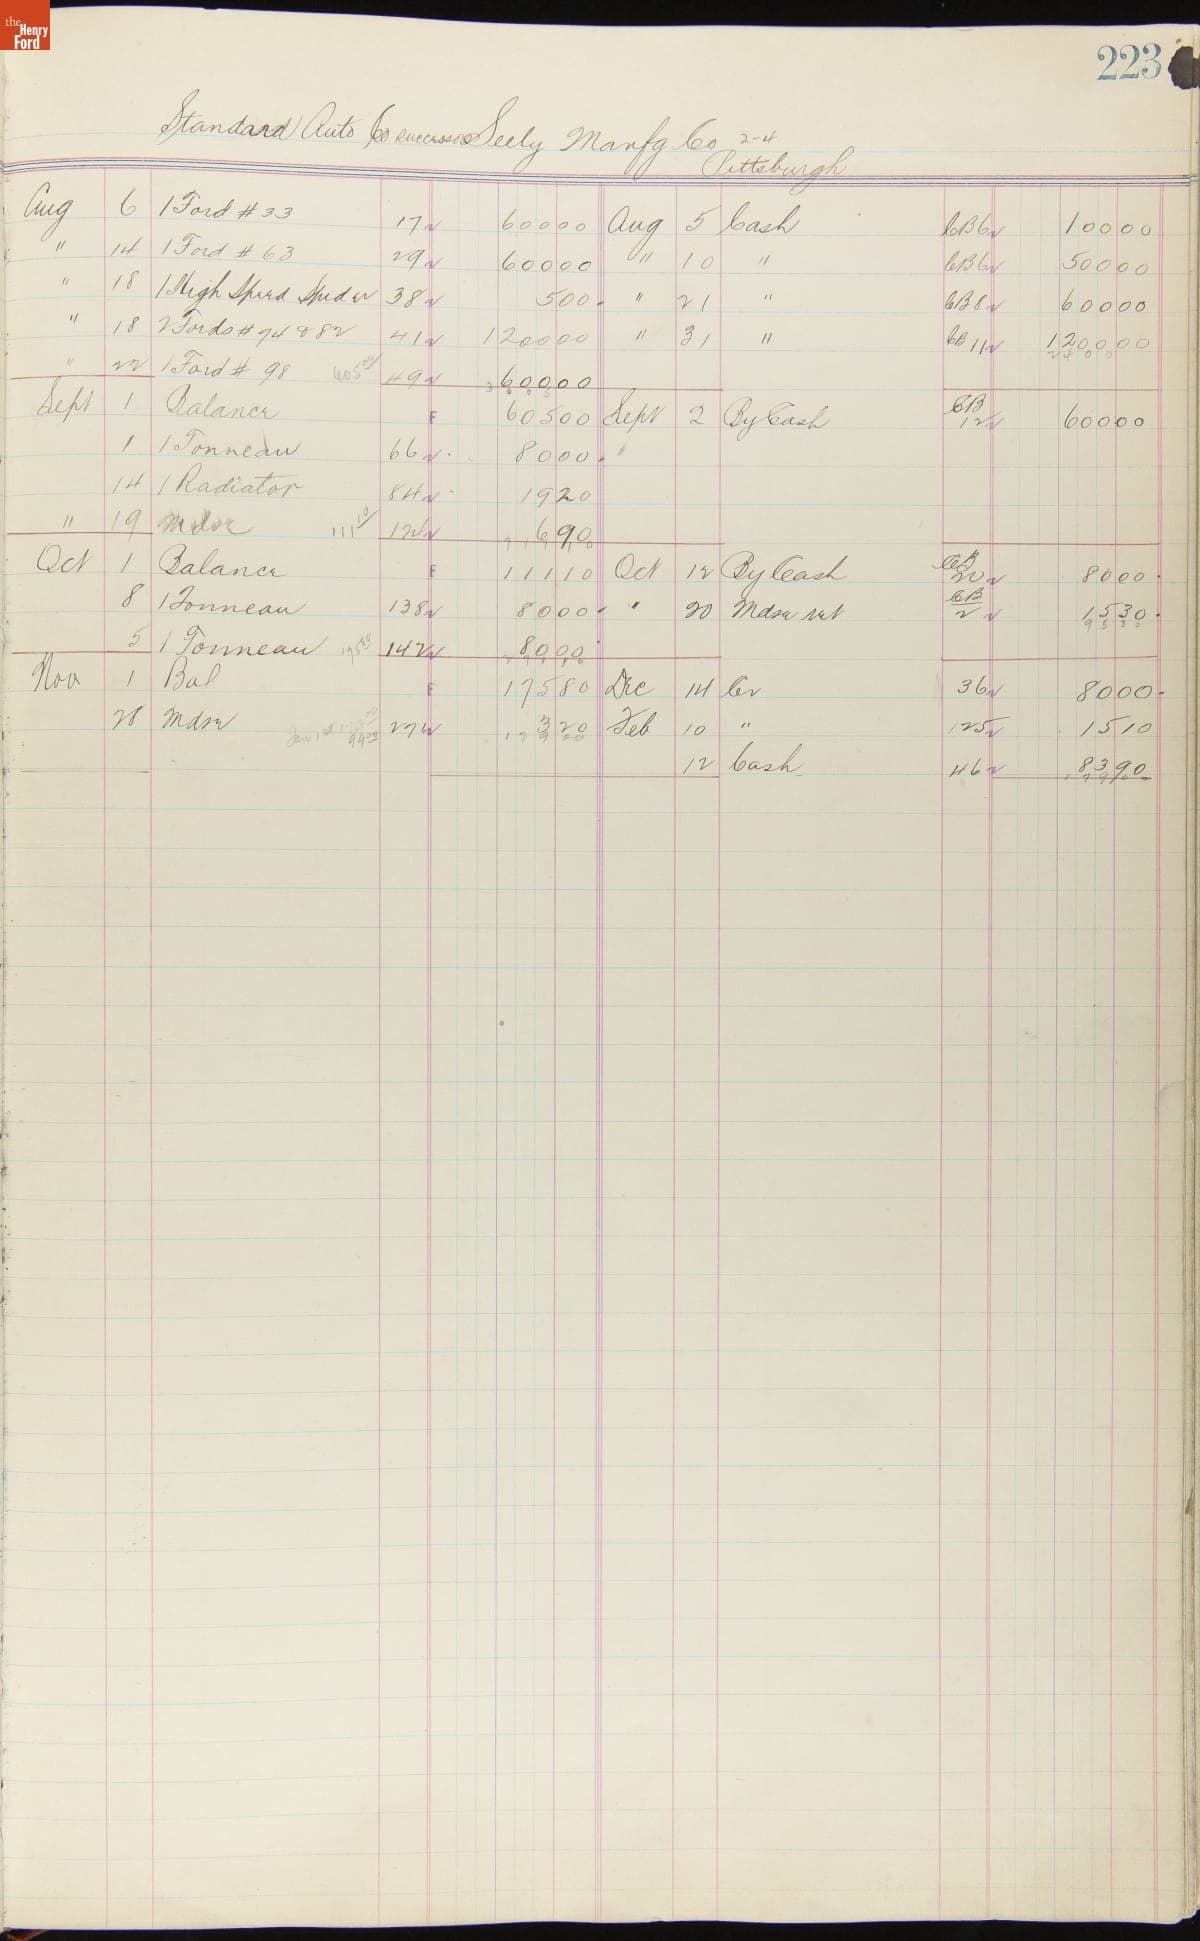 the Henry Ford
223
Standard Auto Co successors Seely Manfg Co 2-4
Pittsburgh
Aug 6 1 Ford # 33 17 60000 Aug 5 Cash CB6 10000
" 14 1 Ford # 63 29 60000 " 10 " CB6 50000
" 18 1 High Speed 38 500 " 21 " CB8 60000
" 18 2 Fords # 74 & 82 41 120000 " 31 " CB11 120000
2400 00
" 22 1 Ford # 98 605 00 49 60000
Sept 1 Balance F 60500 Sept 2 By Cash CB 12 60000
1 1 Tonneau 66 8000
14 1 Radiator 84 1920
" 19 Mdse 111 10 126 690
Oct 1 Balance F 11110 Oct 12 By Cash CB 20 8000
8 1 Tonneau 138 8000 " 20 Mdse ret CB 2 1530
95 30
5 1 Tonneau 175 80 142 8000
Nov 1 Bal F 17580 Dec 14 Cr 36 8000
28 Mdse 99 00 274 320 Feb 10 " 125 1510
179 00
12 Cash 46 8390
179 00